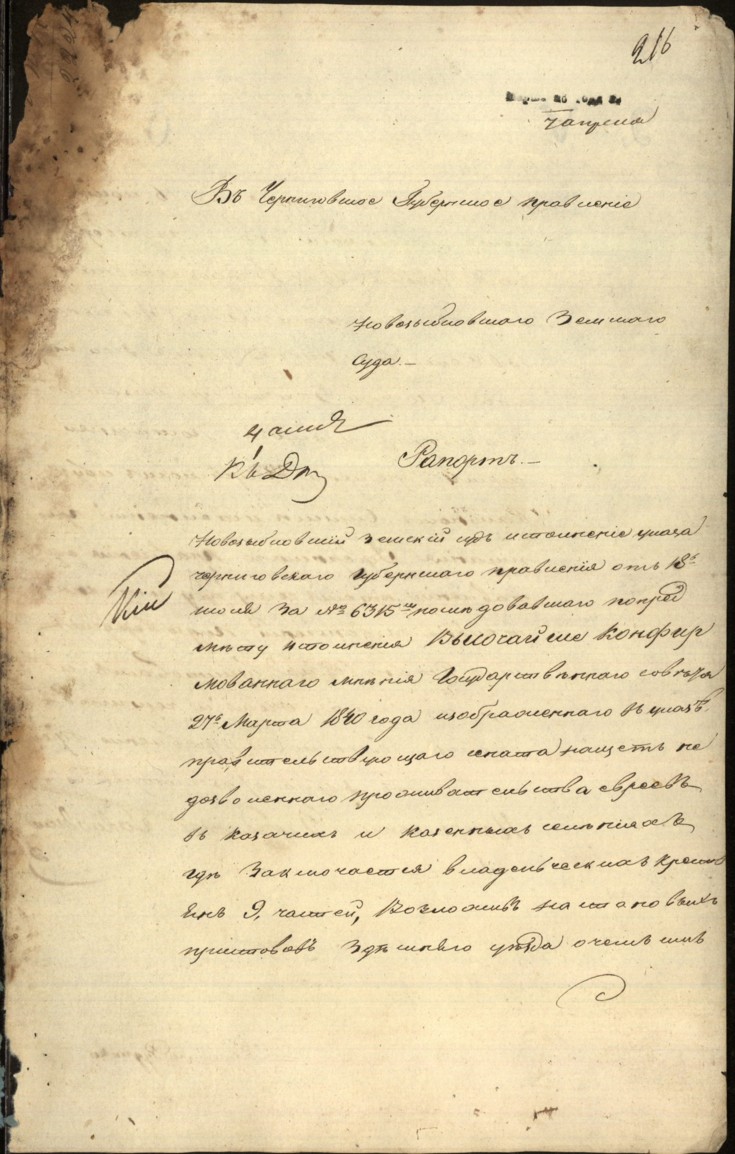 216
7 апреля
Въ Черниговское Губернское правленіе
Новозыбковскаго Земскаго
Суда.—
Рапортъ.—
Новозыбковскій земскій судъ исполненіе указа
черниговскаго губернскаго правленія отъ 18г
іюля за № 6315м последовавшаго попред
мѣту исполненія Высочайше Конфир
мованнаго мнѣнія Государственнаго совѣта
27г Марта 1840 года изображеннаго въ указѣ
правительствующаго сената нащетъ не
дозволеннаго проживательства евреевъ
въ казачихъ и казенныхъ селеніяхъ
гдѣ заключается владельческихъ крестья
янъ 9. частей, Возложивъ на становыхъ
приставовъ здѣшняго уѣзда очемъ имъ